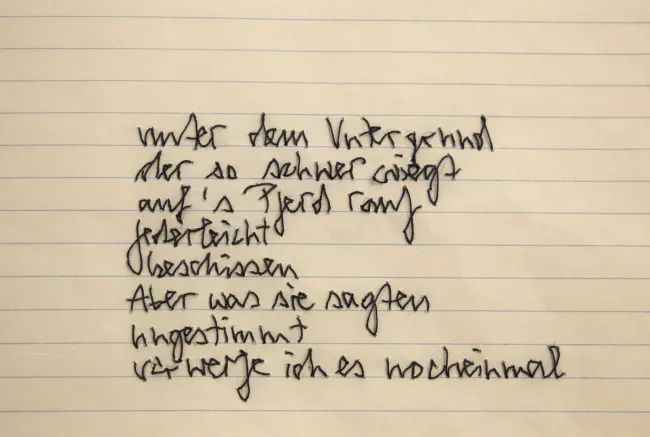 unter dem Untergrund
der so schwer wiegt
auf's Pferd rauf
federleicht
beschissen
Aber was sie sagten
ungestimmt
verwerfe ich es nocheinmal